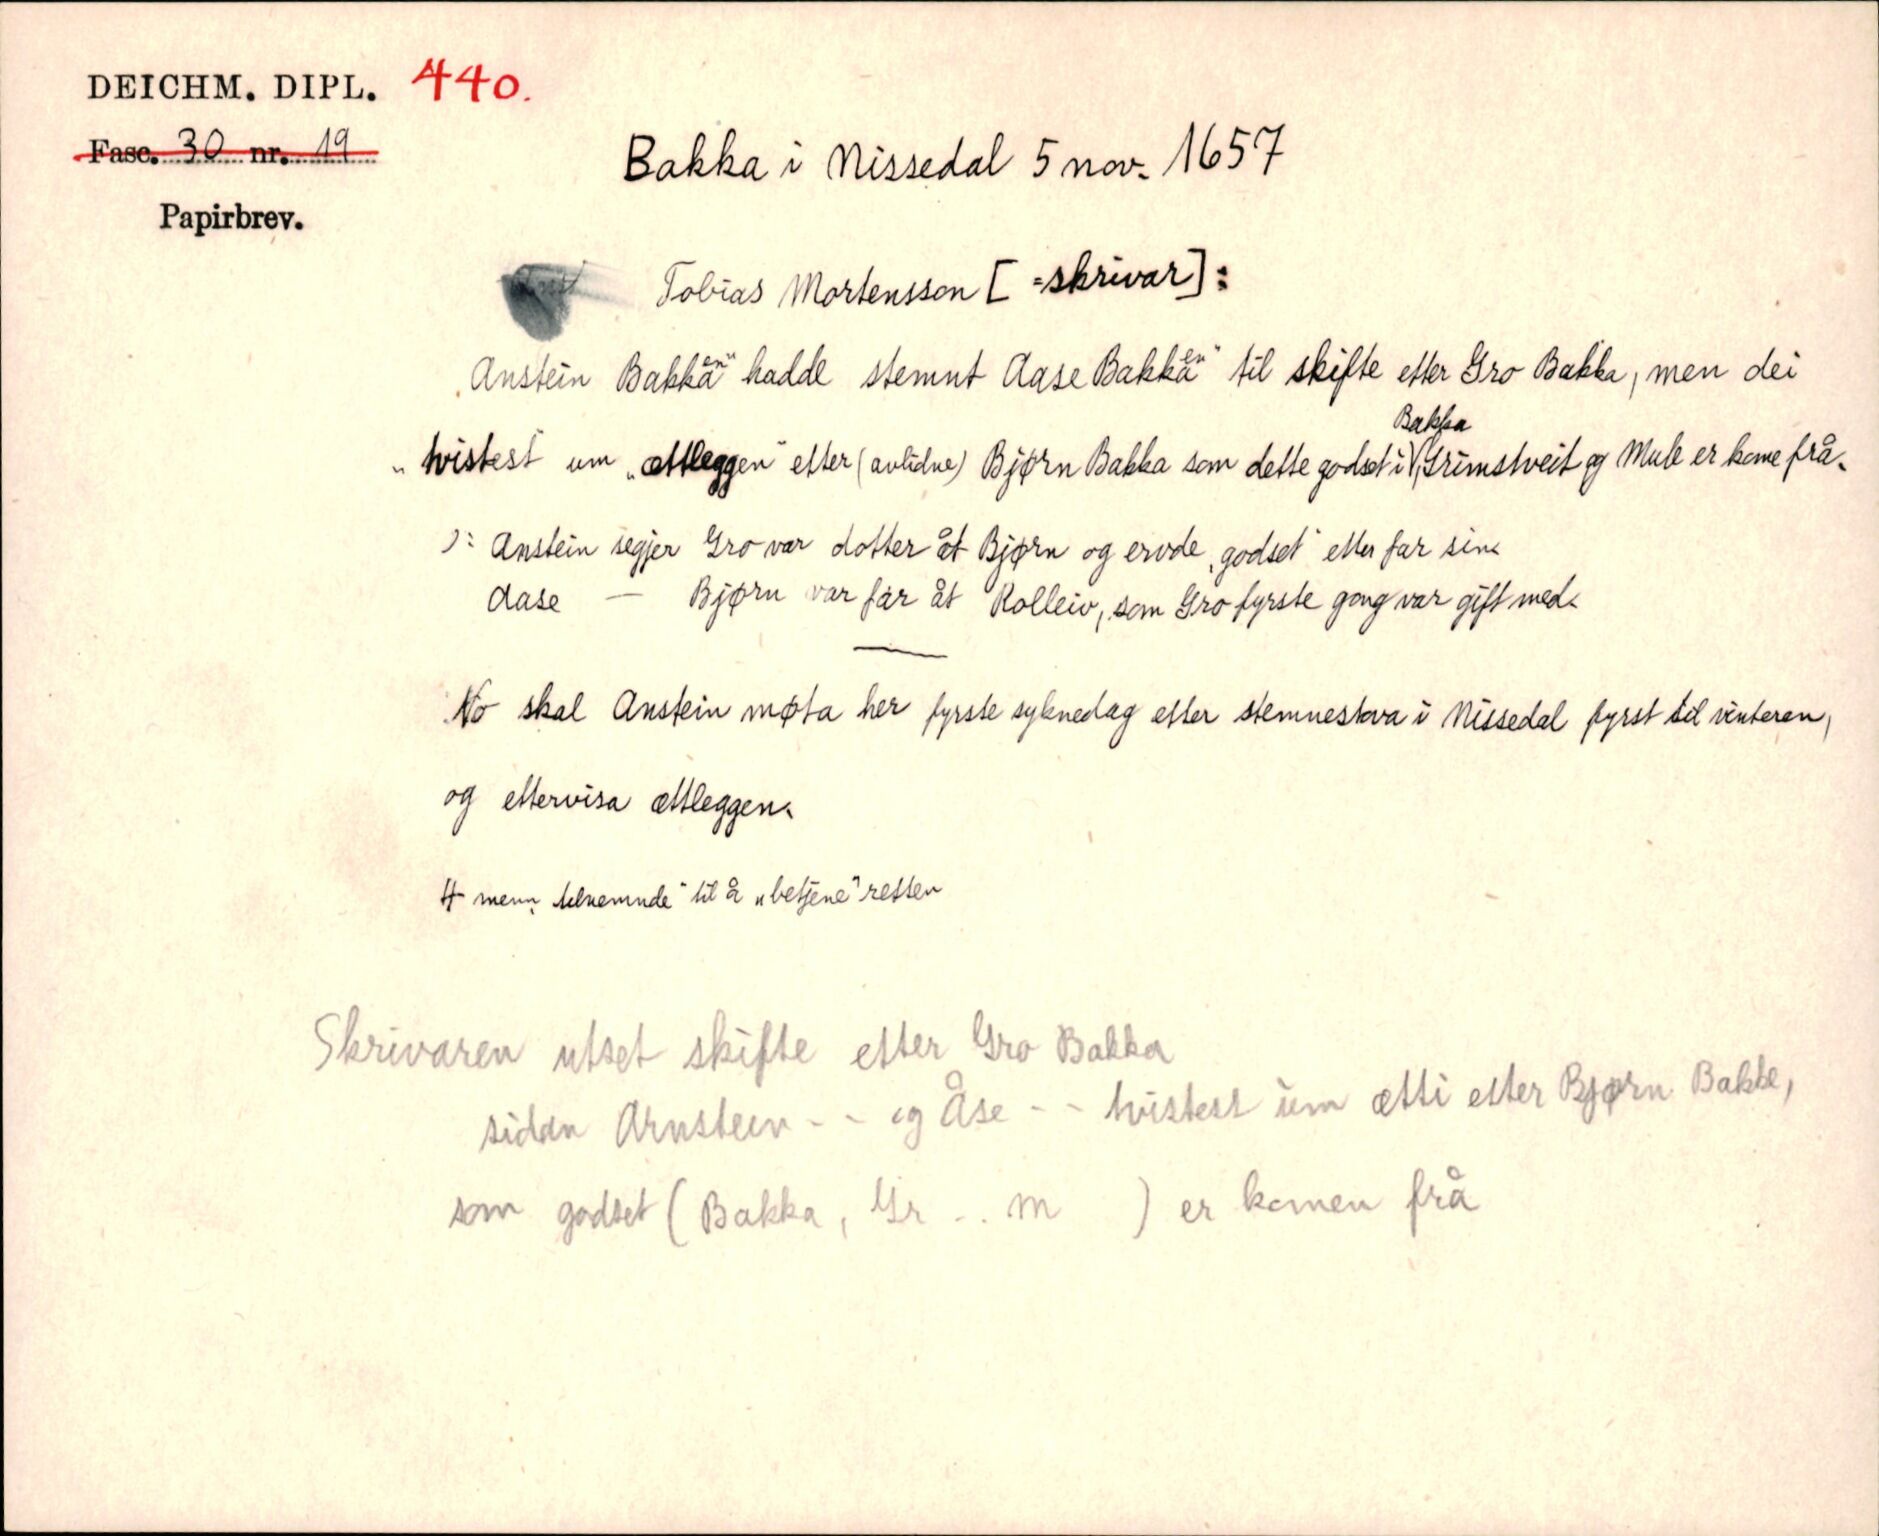 DEICHM. DIPL. 440.
Fasc. 30 nr. 19
Papirbrev.
Bakka i Nissedal 5 nov. 1657
Tobias Mortensson [ =skrivar]:
Anstein Bakka en" hadde stemnt Aase Bakka en" til skifte etter Gro Bakka, men dei
"tvistest um "ættleggen" etter (avlidne) Bjørn Bakka som dette godset i Bakka, Grimstveit og Mule er kome frå.
ɔ: Anstein segjer Gro var dotter åt Bjørn og ervde "godset" etter far sin.
Aase — Bjørn var far åt Rolleiv, som Gro fyrste gong var gift med.
No skal Anstein møta her fyrste syknedag etter stemnestova i Nissedal fyrst til vinteren,
og ettervisa ættleggen.
4 menn "tilnemnde" til å "betjene" retten
Skrivaren utset skifte etter Gro Bakka
sidan Arnstein - - og Åse - - tvistest um ætti etter Bjørn Bakke,
som godset (Bakka, Gr .. M ) er komen frå